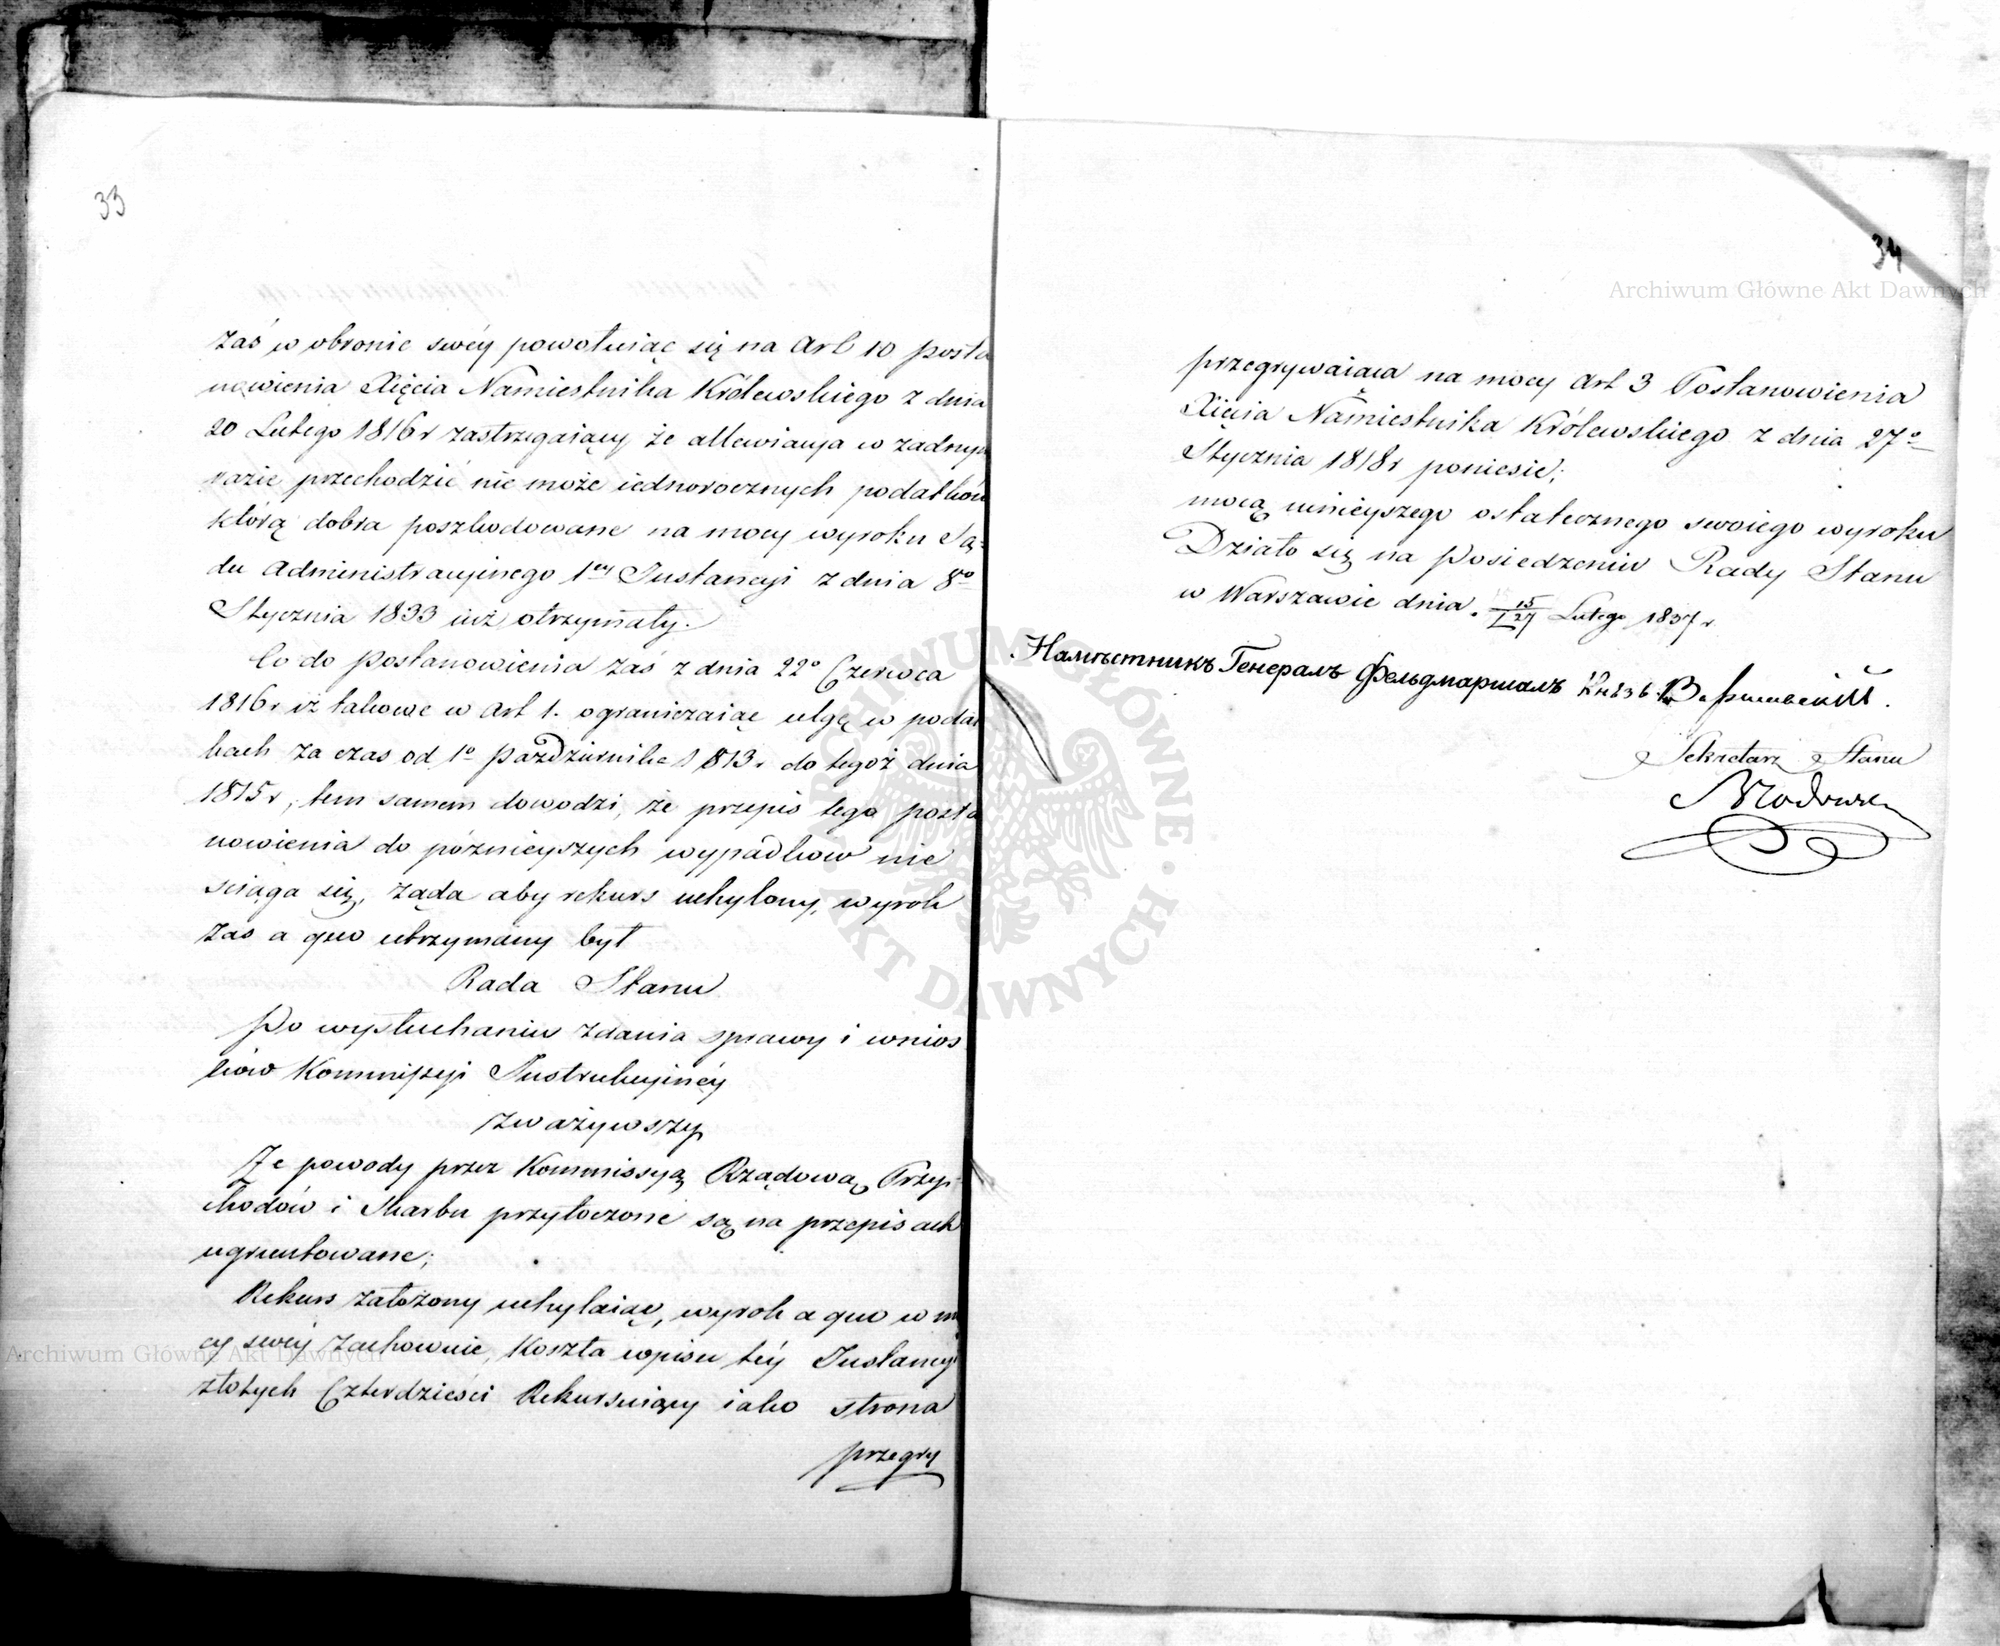 33
zaś w obronie swéy powołuiąc się na Art 10 posta
nowienia Xięcia Namiestnika Królewskiego z dnia
20 Lutego 1816 r zastrzegaiący że allewiacya w żadnym
razie przechodzić nie może iednorocznych podatków
którą dobra poszkodowane na mocy wyroku Są-
du Administracyinego 1ey Instancyi z dnia 8o
Stycznia 1833 iuż otrzymały.
Co do postanowienia zaś z dnia 22o Czerwca
1816 r iż takowe w Art 1. ograniczaiąc ulgę w podat
kach za czas od 1o Października 1813 r do tegoż dnia
1815 r, tem samem dowodzi, że przepis tego posta
nowienia do późnieyszych wypadkow nie
sciąga się, żąda aby rekurs uchylony, wyrok
zas a quo utrzymany był
Rada Stanu
Po wysłuchaniu zdania sprawy i wnios
ków Kommissyi Instrukcyinéy
zważywszy
Że powody przez Kommissyą Rządową Przy-
chodów i Skarbu przytoczone są na przepisach
ugruntowane;
Rekurs założony uchylaiąc, wyrok a quo w mo
cy swéy zachowuie, Koszta wpisu téy Instancyi
złotych Czterdzieści Rekursuiący iako strona
przegry
34
Archiwum Główne Akt Dawnych
przegrywaiąca na mocy Art 3 Postanowienia
Xięcia Namiestnika Królewskiego z dnia 27o
Stycznia 1818 r poniesie;
mocą ninieyszego ostatecznego swoiego wyroku
Działo się na Posiedzeniu Rady Stanu
w Warszawie dnia 15/27 Lutego 1837 r
Намѣстникъ Генералъ Фельдмаршалъ Князь Варшавскій.
Sekretarz Stanu
ARCHIWUM GŁÓWNE · AKT DAWNYCH ·
Archiwum Główne Akt Dawnych